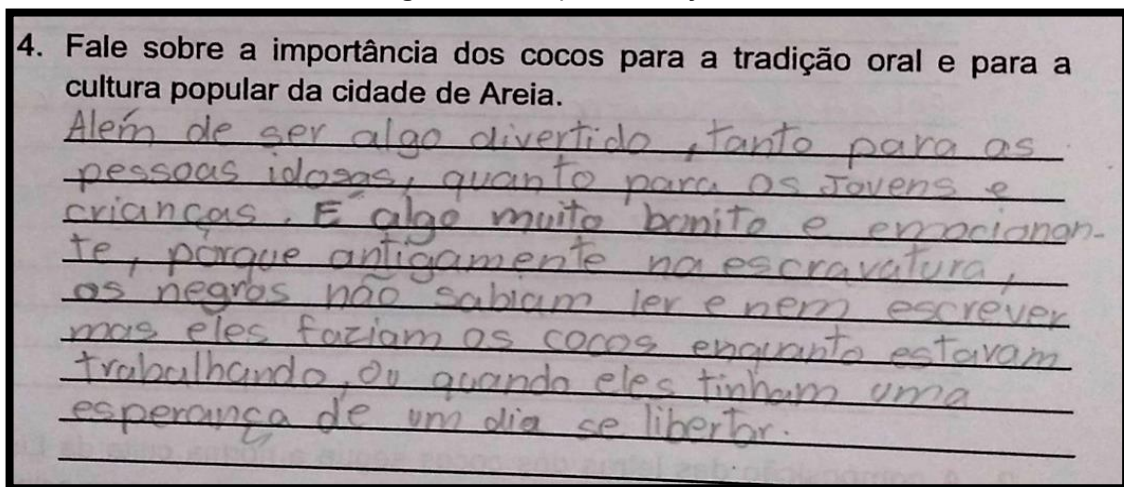 4. Fale sobre a importância dos cocos para a tradição oral e para a
cultura popular da cidade de Areia.
Além de ser algo divertido, tanto para as
pessoas idosas, quanto para os Jovens e
crianças. É algo muito bonito e emocionan-
te, porque antigamente na escravatura,
os negros não sabiam ler e nem escrever
mas eles faziam os cocos enquanto estavam
trabalhando, ou quando eles tinham uma
esperança de um dia se libertar.